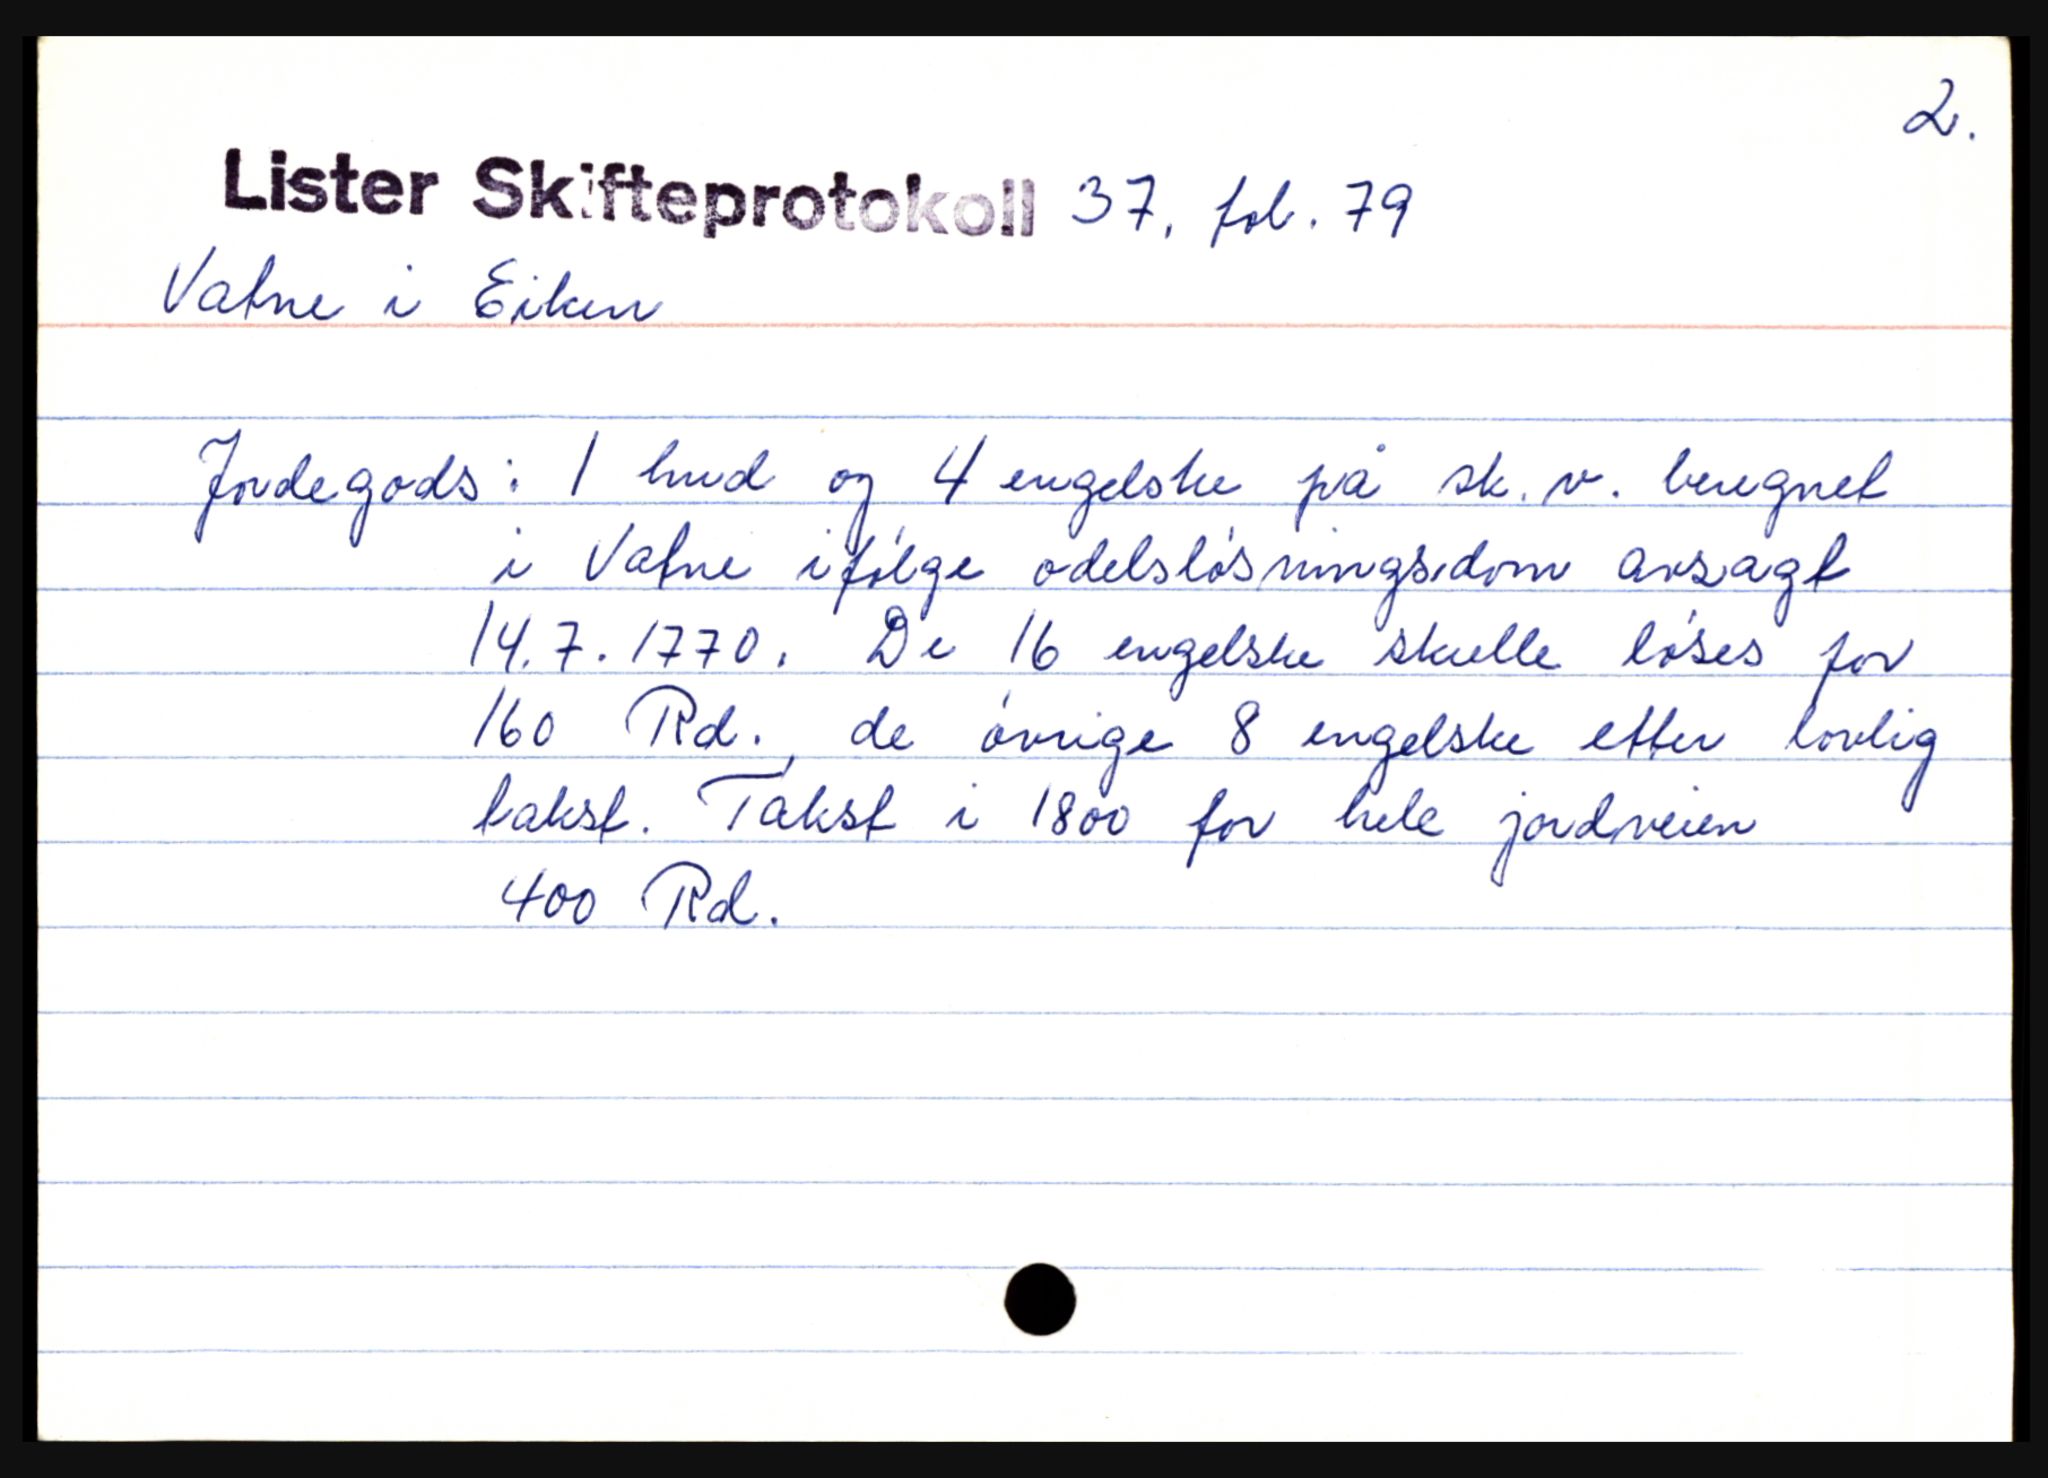 2.
Lister Skifteprotokoll 37, fol. 79
Vatne i Eiken
Jordegods: 1 hud og 4 engelske på sk. v. beregnet
i Vatne ifølge odelsløsningsdom avsagt
14.7.1770. De 16 engelske skulle løses for
160 Rd., de øvrige 8 engelske etter lovlig
takst. Takst i 1800 for hele jordveien
400 Rd.